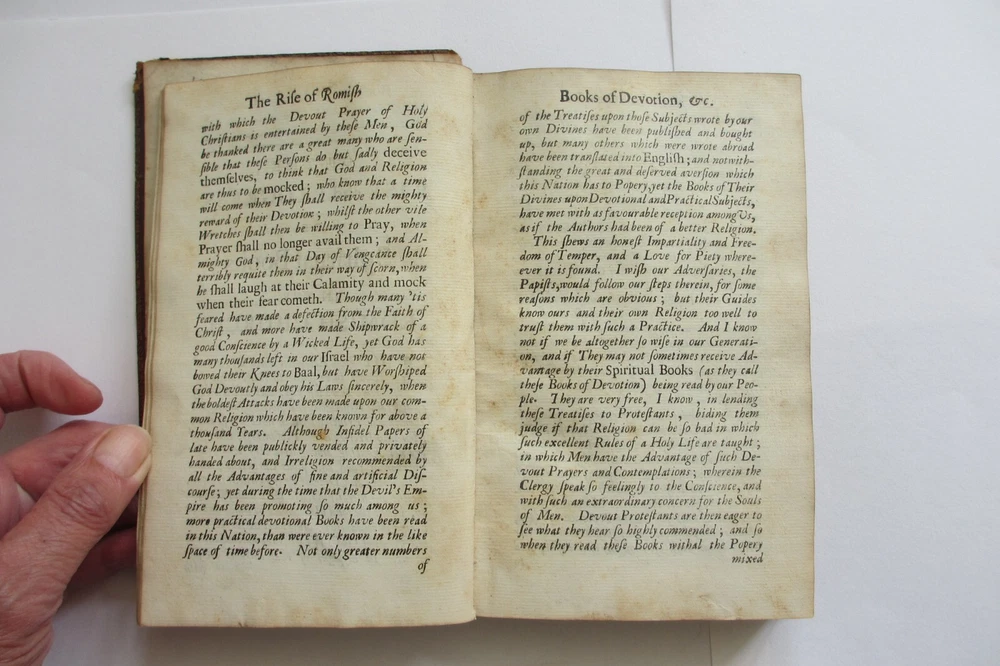 The Riſe of Romiſh
with which the Devout Prayer of Holy
Chriſtians is entertained by theſe Men, God
be thanked there are a great many who are ſen-
ſible that theſe Perſons do but ſadly deceive
themſelves, to think that God and Religion
are thus to be mocked; who know that a time
will come when They ſhall receive the mighty
reward of their Devotion; whilſt the other vile
Wretches ſhall then be willing to Pray, when
Prayer ſhall no longer avail them; and Al-
mighty God, in that Day of Vengeance ſhall
terribly requite them in their way of ſcorn, when
he ſhall laugh at their Calamity and mock
when their fear cometh. Though many 'tis
feared have made a defection from the Faith of
Chriſt, and more have made Shipwrack of a
good Conſcience by a Wicked Life, yet God has
many thouſands left in our Iſrael who have not
bowed their Knees to Baal, but have Worſhiped
God Devoutly and obey his Laws ſincerely, when
the boldeſt Attacks have been made upon our com-
mon Religion which have been known for above a
thouſand Years. Although Infidel Papers of
late have been publickly vended and privately
handed about, and Irreligion recommended by
all the Advantages of fine and artificial Diſ-
courſe; yet during the time that the Devil's Em-
pire has been promoting ſo much among us;
more practical devotional Books have been read
in this Nation, than were ever known in the like
ſpace of time before. Not only greater numbers
of
Books of Devotion, &c.
of the Treatiſes upon thoſe Subjects wrote by our
own Divines have been publiſhed and bought
up, but many others which were wrote abroad
have been tranſlated into Engliſh; and notwith-
ſtanding the great and deſerved averſion which
this Nation has to Popery, yet the Books of Their
Divines upon Devotional and Practical Subjects,
have met with as favourable reception among Us,
as if the Authors had been of a better Religion.
This ſhews an honeſt Impartiality and Free-
dom of Temper, and a Love for Piety where-
ever it is found. I wiſh our Adverſaries, the
Papiſts, would follow our ſteps therein, for ſome
reaſons which are obvious; but their Guides
know ours and their own Religion too well to
truſt them with ſuch a Practice. And I know
not if we be altogether ſo wiſe in our Generati-
on, and if They may not ſometimes receive Ad-
vantage by their Spiritual Books (as they call
theſe Books of Devotion) being read by our Peo-
ple. They are very free, I know, in lending
theſe Treatiſes to Proteſtants, biding them
judge if that Religion can be ſo bad in which
ſuch excellent Rules of a Holy Life are taught;
in which Men have the Advantage of ſuch De-
vout Prayers and Contemplations; wherein the
Clergy ſpeak ſo feelingly to the Conſcience, and
with ſuch an extraordinary concern for the Souls
of Men. Devout Proteſtants are then eager to
ſee what they hear ſo highly commended; and ſo
when they read theſe Books withal the Popery
mixed